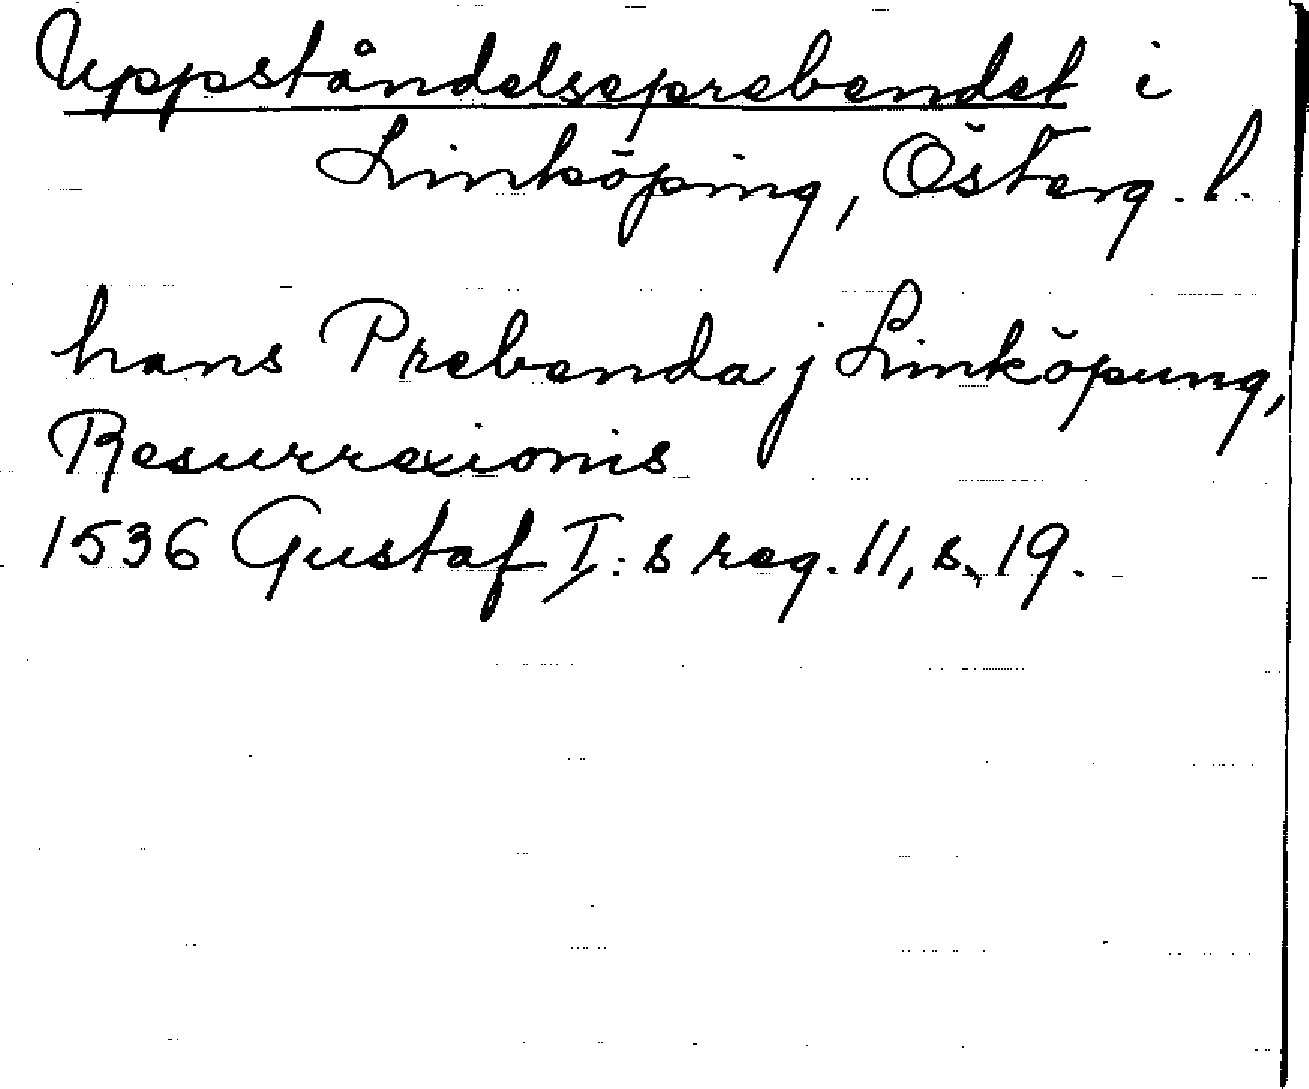 Uppståndelseprebendet i
Linköping, Österg. l.
hans Prebenda j Linköpung,
Resurrexionis
1536 Gustaf I:s reg. 11, s. 19.